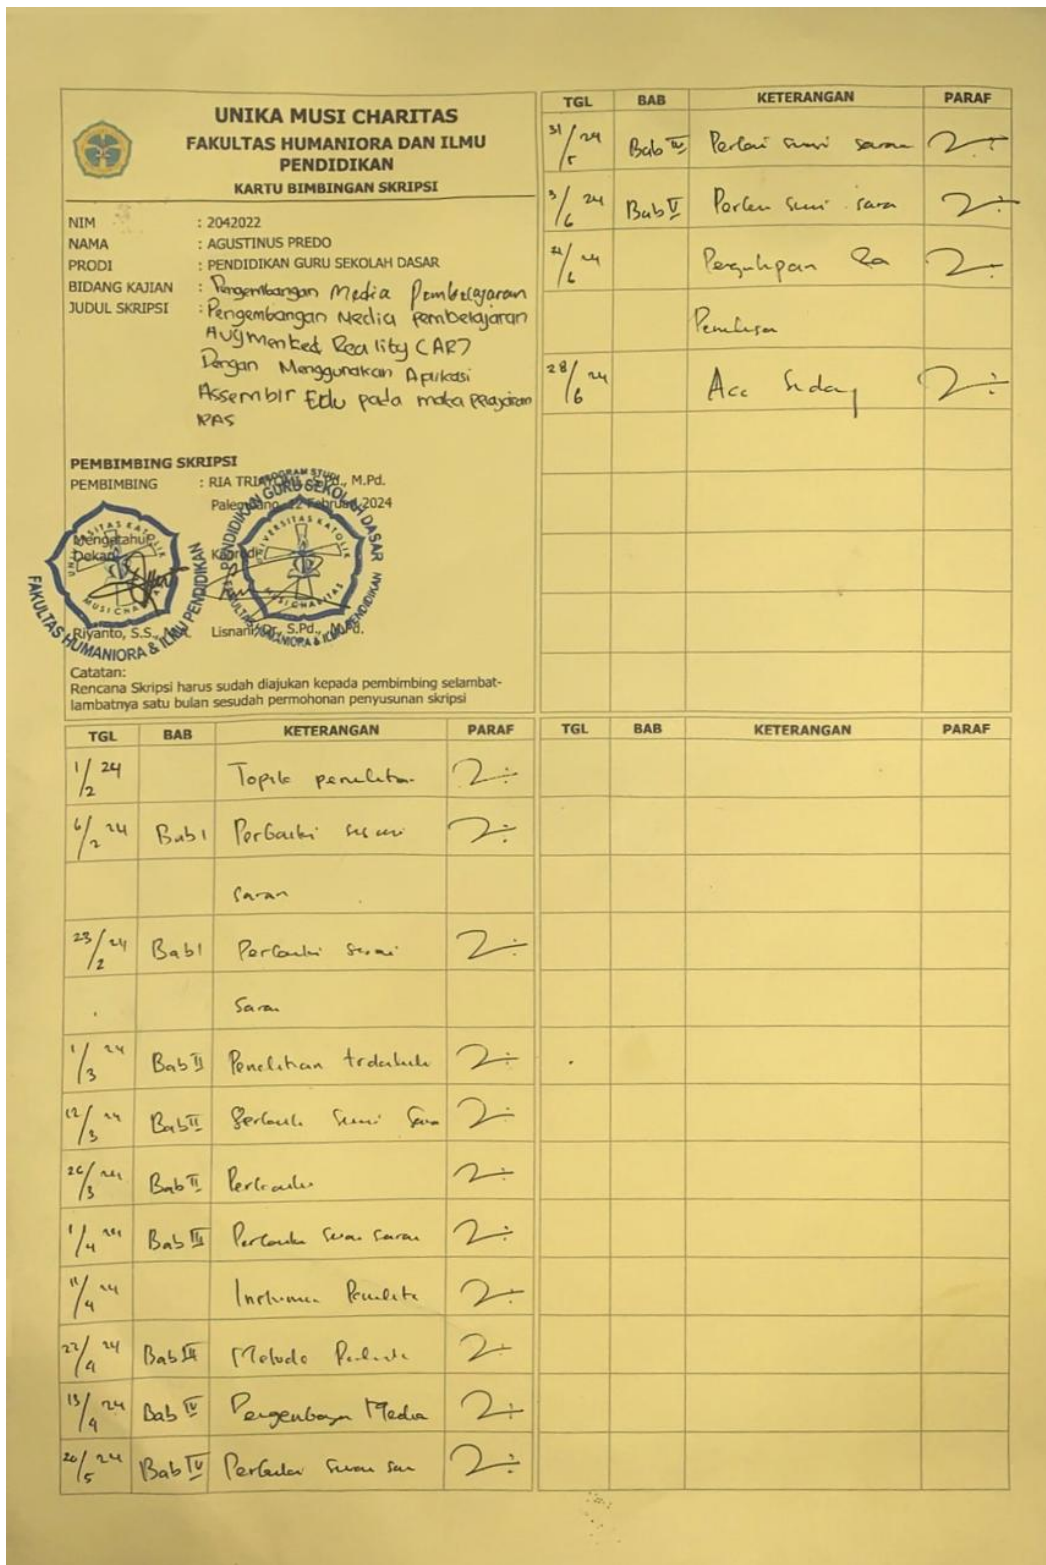 UNIKA MUSI CHARITAS
FAKULTAS HUMANIORA DAN ILMU
PENDIDIKAN
KARTU BIMBINGAN SKRIPSI
NIM : 2042022
NAMA : AGUSTINUS PREDO
PRODI : PENDIDIKAN GURU SEKOLAH DASAR
BIDANG KAJIAN : Pengembangan Media Pembelajaran
JUDUL SKRIPSI : Pengembangan Media Pembelajaran
Augmented Reality (AR)
Dengan Menggunakan Aplikasi
Assemblr Edu pada mata Pelajaran
IPAS
PEMBIMBING SKRIPSI
PEMBIMBING : RIA S.Pd., M.Pd.
Palembang, 12 Februari 2024
Mengetahui,
Dekan Kaprodi
Riyanto, S.S., M.A. Lisnani, Dr., S.Pd., M.Pd.
UNIVERSITAS KATOLIK
MUSI CHARITAS
FAKULTAS HUMANIORA & ILMU PENDIDIKAN
PROGRAM STUDI
PENDIDIKAN GURU SEKOLAH DASAR
UNIVERSITAS KATOLIK
MUSI CHARITAS
FAKULTAS HUMANIORA & ILMU PENDIDIKAN
Catatan:
Rencana Skripsi harus sudah diajukan kepada pembimbing selambat-
lambatnya satu bulan sesudah permohonan penyusunan skripsi
TGL BAB KETERANGAN PARAF
1/2 24 Topik penelitian
6/2 24 Bab I Perbaiki sesuai
saran
23/2 24 Bab I Perbaiki sesuai
Saran
1/3 24 Bab II Penelitian terdahulu
12/3 24 Bab II Perbaiki sesuai saran
26/3 24 Bab II Perbaiki
1/4 24 Bab III Perbaiki sesuai saran
11/4 24 Instrumen Penelitian
22/4 24 Bab III Metode Penelitian
13/4 24 Bab IV Pengembangan Media
20/5 24 Bab IV Perbaiki sesuai saran
TGL BAB KETERANGAN PARAF
31/5 24 Bab IV Perbaiki sesuai saran
3/6 24 Bab V Perbaiki sesuai saran
/6 24
28/6 24 Acc Sidang
TGL BAB KETERANGAN PARAF